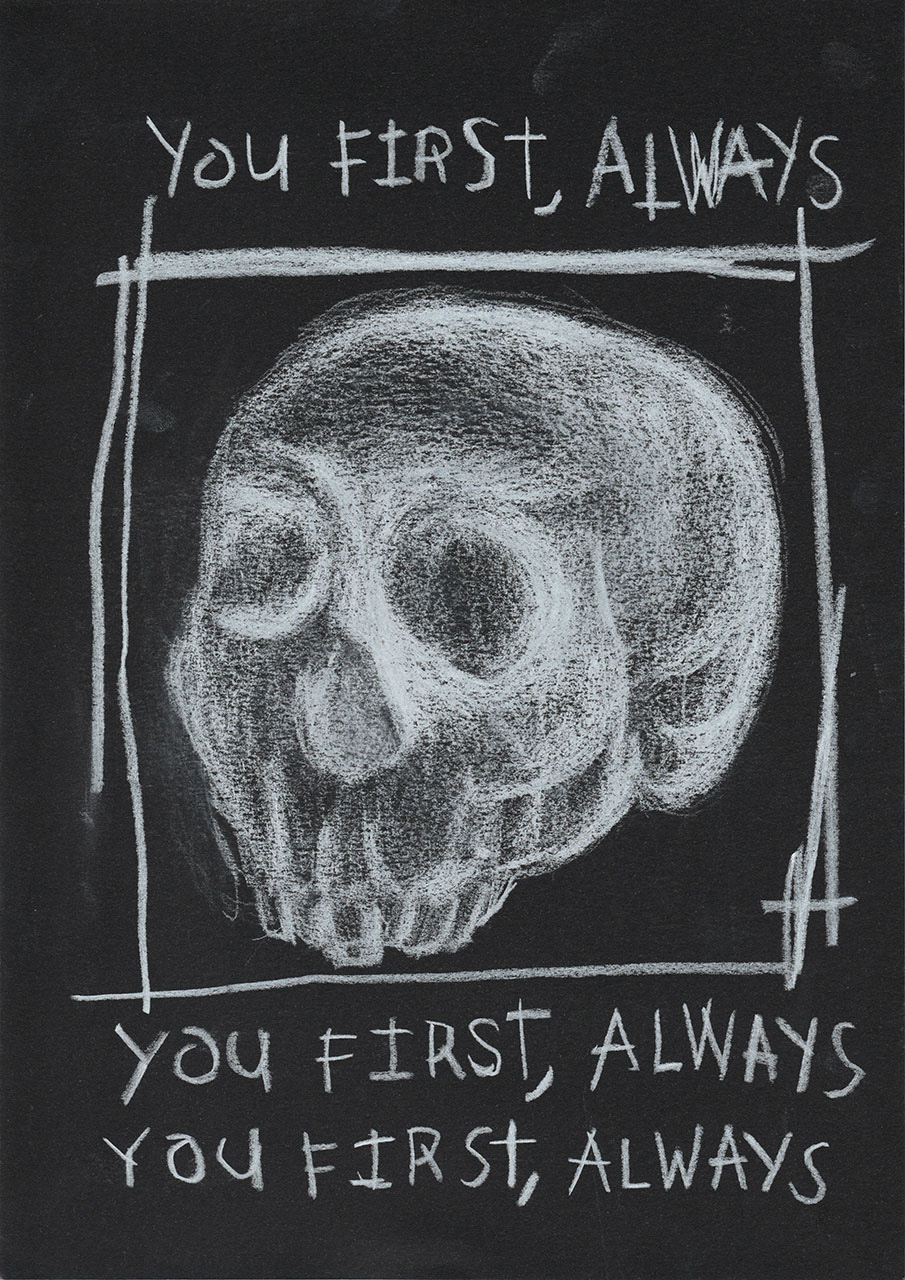 YOU FIRST, ALWAYS
YOU FIRST, ALWAYS
YOU FIRST, ALWAYS